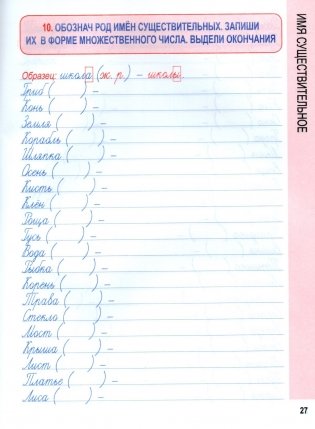 10. ОБОЗНАЧ РОД ИМЁН СУЩЕСТВИТЕЛЬНЫХ. ЗАПИШИ
ИХ В ФОРМЕ МНОЖЕСТВЕННОГО ЧИСЛА. ВЫДЕЛИ ОКОНЧАНИЯ
ИМЯ СУЩЕСТВИТЕЛЬНОЕ
Образец: школа (ж. р.) – школы.
Гриб ( ) –
Конь ( ) –
Земля ( ) –
Корабль ( ) –
Шляпка ( ) –
Осень ( ) –
Кисть ( ) –
Клён ( ) –
Роща ( ) –
Гусь ( ) –
Вода ( ) –
Рыбка ( ) –
Корень ( ) –
Трава ( ) –
Стекло ( ) –
Мост ( ) –
Крыша ( ) –
Лист ( ) –
Платье ( ) –
Лиса ( ) –
27